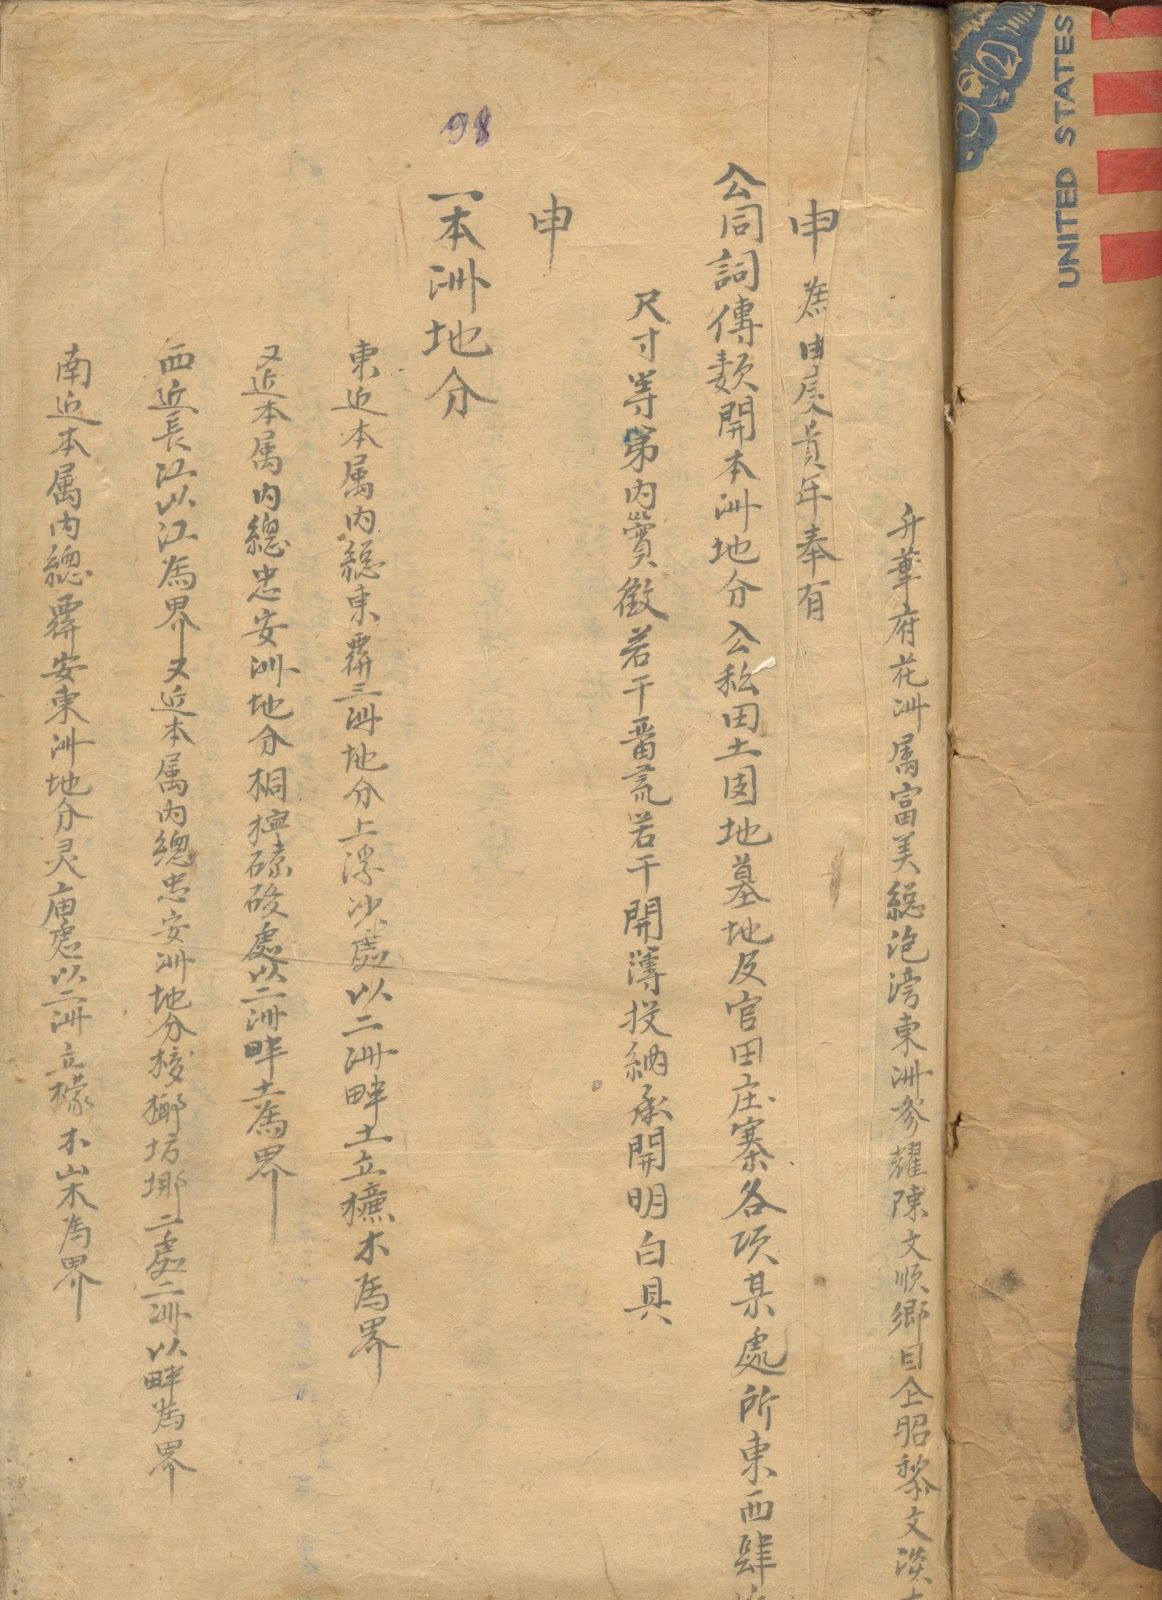 UNITED STATES
98
升華府花洲属富美總泡滂東洲參耀陳文順鄉目仝昭黎文淡
申為由庚寅年奉有
公同詞傳類開本洲地分公私田土园地墓地及官田庄寨各項某處所東西肆
尺寸等第內實徵若干畨荒若干開薄投納承開明白具
申
一本洲地分
東近本属内總東霽三洲地分上浮沙處以二洲畔土立木為界
又近本属内總忠安洲地分桐處以二洲畔土為界
西近長江以江為界又近本属内總忠安洲地分梭椰坊挪二處二洲以畔為界
南近本属内總霽安東洲地分灵庙處以二洲立檬木寨為界